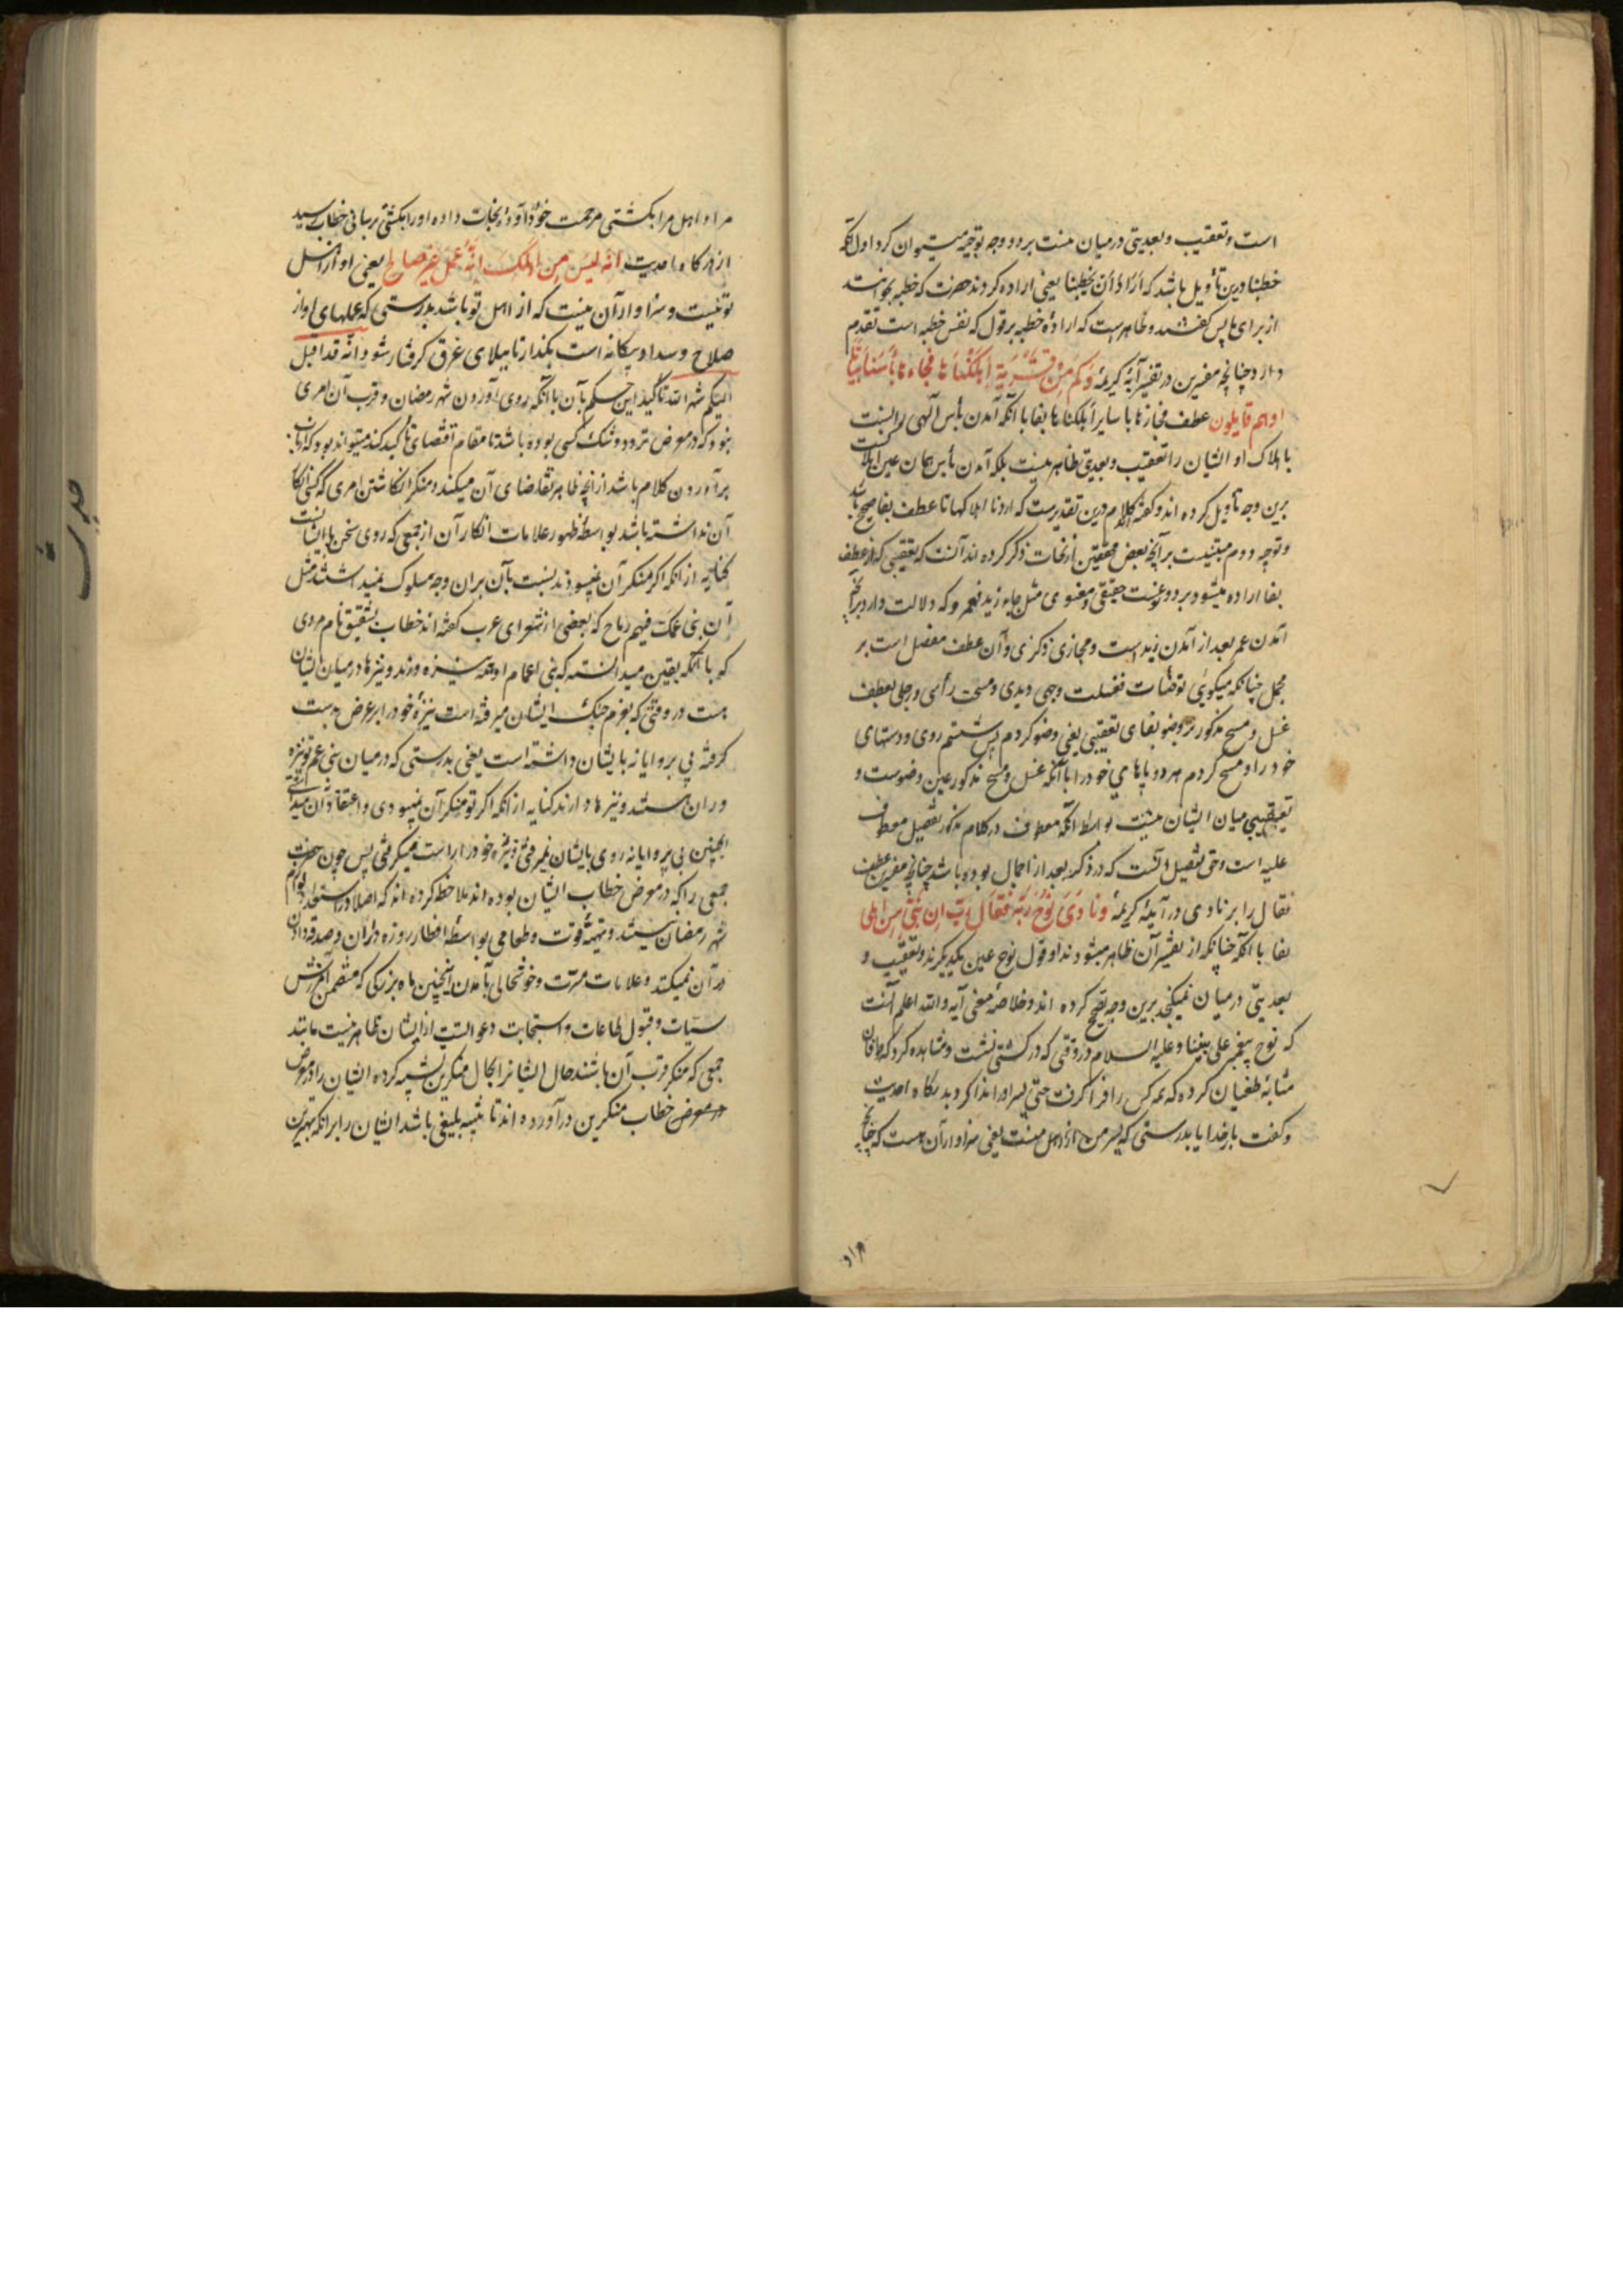 است و تعقیب و بعدیتی درمیان نیست بر دو وجه توجیه میتوان کرد اول آنکه
خطبنا درین تأویل باشد که اراد أن یخطبنا یعنی اراده کردند حضرت که خطبه بخوانند
از برای ما پس کفتند و ظاهرست که ارادهٔ خطبه بر قول که نفس خطبه است تقدم
دارد چنانچه مفسرین در تفسیر آیهٔ کریمهٔ وَكَم مِن قَريَةٍ اَهلَكناها فَجاءَها بَأسُنا بَياتًا
او هم قایلون عطف فجاءها با سایر اهلکناها بفا با آنکه آمدن بأس آلهی را نسبت
با هلاک او ایشان را تعقیب و بعدیتی ظاهر نیست بلکه آمدن بأس همان عین اهلاکست
برین وجه تأویل کرده اند و کفته کلام درین تقدیرست که اردنا اهلاکها تا عطف بفا صحیح باشد
و توجیه دوم مبتنیست بر آنچه بعض محققین از نحات ذکر کرده اند آنست که تعقیبی که از عطف
بفا اراده میشود بر دو نوعست حقیقی و معنوی مثل جاء زید فعمرو که دلالت دارد بر آنکه
آمدن عمر بعد از آمدن زید است و مجازی ذکری و آن عطف مفصل است بر
مجمل چنانکه میکویی توضأت فغسلت وجهی و یدی و مسحت رأسی و رجلی بعطف
غسل و مسح مذکور بر وضو بفای تعقیبی یعنی وضو کردم پس شستم روی و دستهای
خود را و مسح کردم هر دو پاهای خود را با آنکه غسل و مسح مذکور عین وضوست و
تعقیبی میان ایشان نیست بواسطهٔ آنکه معطوف در کلام مذکور تفصیل معطوف
علیه است و حق تفصیل آنست که در ذکر بعد از اجمال بوده باشد چنانچه مفسرین عطف
فقال را بر نادی در آیهٔ کریمهٔ وَنادى نوحٌ رَبَّهُ فَقالَ رَبِّ اِنَّ ابنی مِن اهلی
بفا با آنکه چنانکه از تفسیر آن ظاهر میشود ندا و قول نوح عین یکدیکرند و تعقیب و
بعدیتی درمیان نمیکنجد برین وجه تصحیح کرده اند و خلاصهٔ معنی آیه والله اعلم آنست
که نوح پیغمبر علی نبینا و علیه السلام در وقتی که در کشتی نشست و مشاهده کرد که طوفان
مثابه طغیان کرده که همه کس را فرا کرفت حتی پسر او را ندا کرد بدرکاه احدیت
و کفت بار خدایا بدرستی که پسر من از اهل منست یعنی سزاوار آن هست که چنانچه
مرا و
مرا و اهل مرا بکشتی مرحمت خود آورده نجات داده او را بکشتی رسانی خطاب رسید
از درکاه احدیت انّه لَیسَ مِن اهلِکَ اِنَّهُ عَمَلٌ غَیرُ صالِح یعنی او از اهل
تو نیست و سزاوار آن نیست که از اهل تو باشد بدرستی که عملهای او از
صلاح و سداد بیکانه است بکذار تا ببلای غرق کرفتار شود و انه قد اقبل
الیکم شهر الله تأکید این حکم بآن با آنکه روی آوردن شهر رمضان و قرب آن امری
نبود که در معرض تردد و شک کسی بوده باشد تا مقام اقتضای تأکید کند میتواند بود که از باب
برآوردن کلام باشد از آنچه ظاهر تقاضای آن میکند و منکر انکاشتن امری که کسی انکار
آن نداشته باشد بواسطهٔ ظهور علامات انکار آن از جمعی که روی سخن با ایشانست
کنایه از آنکه اکر منکر آن نمیبودند نسبت بآن بران وجه سلوک نمیداشتند مثل
ان بنی عمک فیهم رماح که بعضی از شعرای عرب کفته اند خطاب بشقیق نام مردی
که با آنکه بیقین میدانسته که بنی اعمام او همه نیزه ورند و نیزها درمیان ایشان
هست در وقتی که بعزم جنک ایشان میرفته است نیزهٔ خود را بر عرض بدست
کرفته بی پروایانه بایشان داشته است یعنی بدرستی که درمیان بنی عم تو نیزه
وران هستند و نیزها دارند کنایه از آنکه اکر تو منکر آن نمیبودی و اعتقاد آن میداشتی
اینچنین بی پروایانه روی بایشان نمیرفتی و نیزهٔ خود را راست میکرفتی پس چون حضرت
جمعی را که در معرض خطاب ایشان بوده اند ملاحظه کرده اند که اصلا در استعداد لوازم
شهر رمضان نیستند و تهیهٔ قوت و طعامی بواسطهٔ افطار روزه داران و صدقه دادن
در آن نمیکنند و علامات مسرت و خوشحالی بآمدن اینچنین ماه بزرکی که متضمن آمرزش
سیئات و قبول طاعات و استجابت دعواتست از ایشان ظاهر نیست مانند
جمعی که منکر قرب آن باشند حال ایشانرا بحال منکرین تشبیه کرده ایشان را در معرض
در معرض خطاب منکرین درآورده اند تا تنبیه بلیغی باشد ایشان را بر آنکه